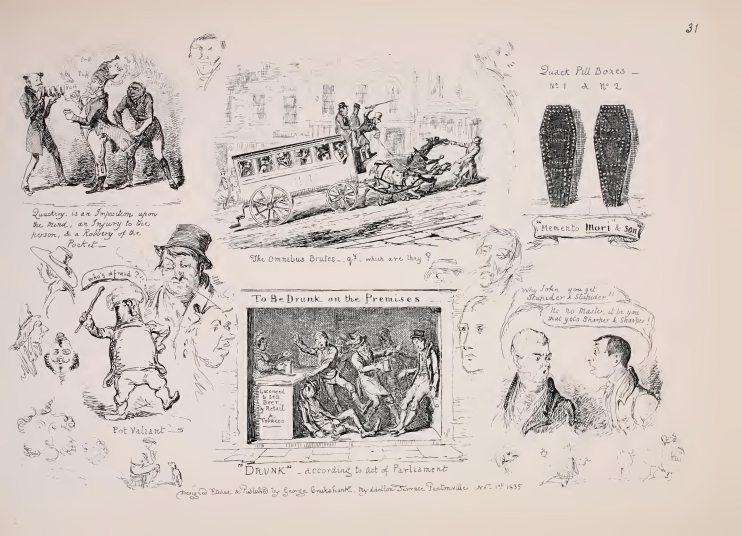 31
Quackery is an Imposition upon
the mind, an Injury to the
person, & a Robbery of the
Pocket
The Omnibus Brutes _ qy. which are they?
Quack Pill Boxes _
No 1 & No 2
"Memento Mori" & Son
who's afraid?
Pot Valiant
To Be Drunk on the Premises
Licensed
to Sell
Beer
by Retail
&
Tobacco
"DRUNK" _ according to Act of Parliament
Why John you get
Stupider & Stupider!!
No no Master, it be you
that gets Sharper & Sharper!
Designed Etched & Published by George Cruikshank. Myddelton Terrace Pentonville Novr. 1st 1835